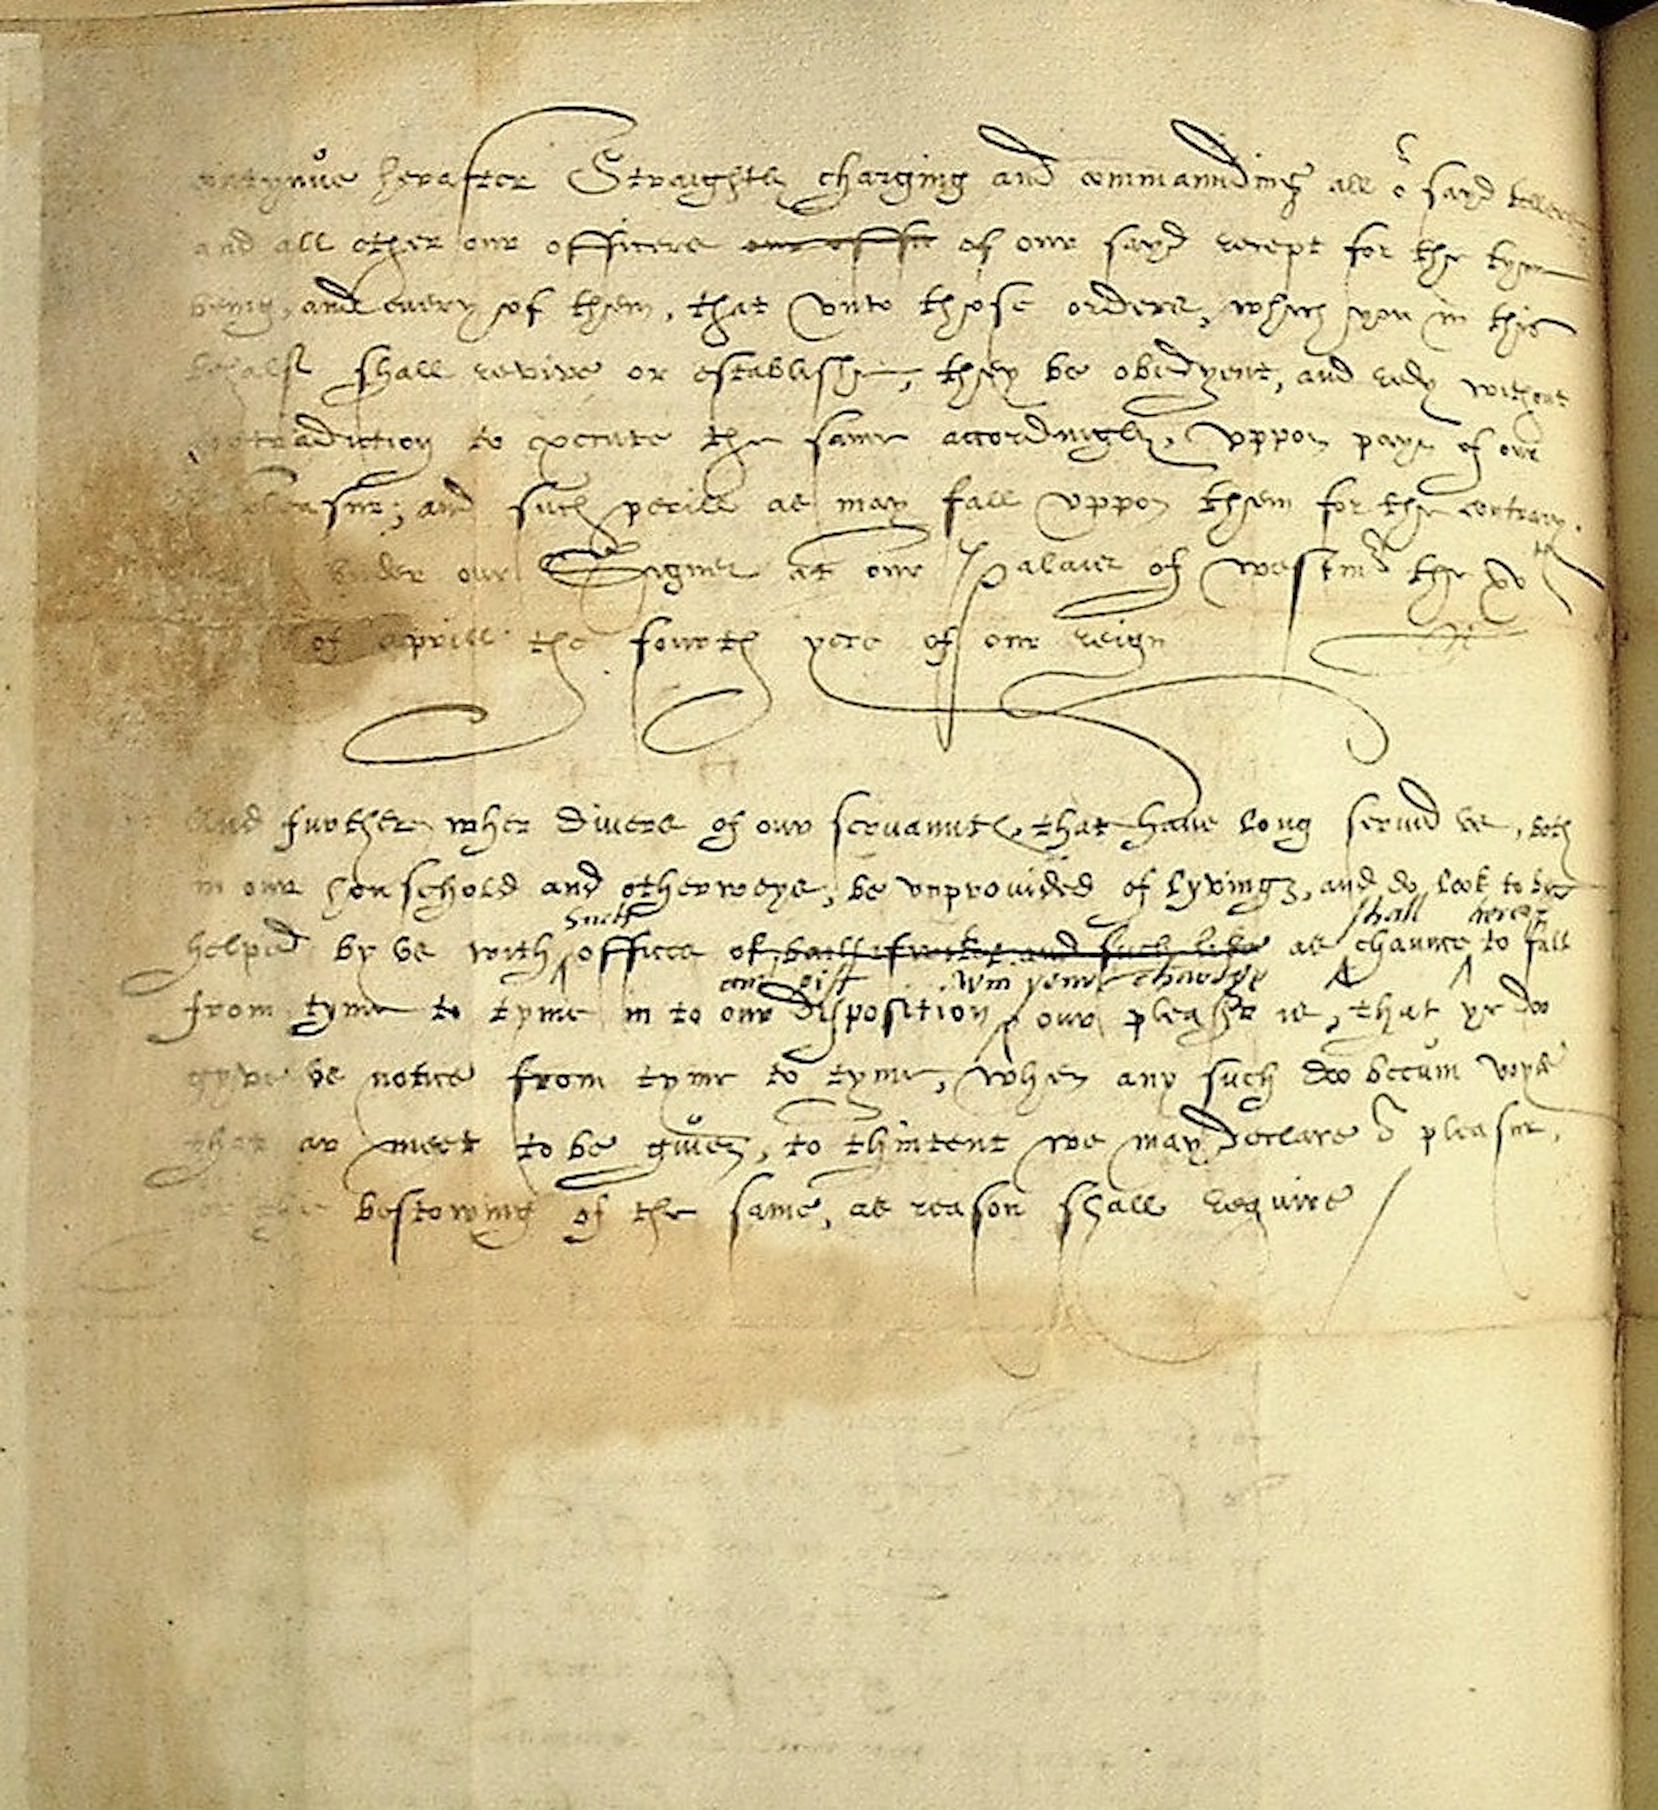 contynue herafter Straightly charging and commaunding all or sayd tellers
and all other our officers our offic of our sayd receipt for the tyme
being, and every of them, that unto those orders, which you in this
behalf shall revive or establishe, they be obedyent, and redy without
contradiction to execute the same accordingly, uppon payn of our
displeasur; and such perill as may fall uppon them for the contrary.
under our Signet at our Palace of Westmr the xvth
of aprill the fourth yere of our reign
And further wher divers of our servaunts, that have long served us, both
in our household and otherweys, be unprovided of lyvings, and do look to be
such shall herafter
helped by us with offices of bailifwikes and such like as chaunce to fall
our gift wtin your charge
from tyme to tyme in to our disposition, our pleasr is, that ye do
gyve us notice from tyme to tyme, when any such do becum voyde
that ar meet to be given, to thintent we may declare or pleasur,
for the bestowing of the same, as reason shall require /